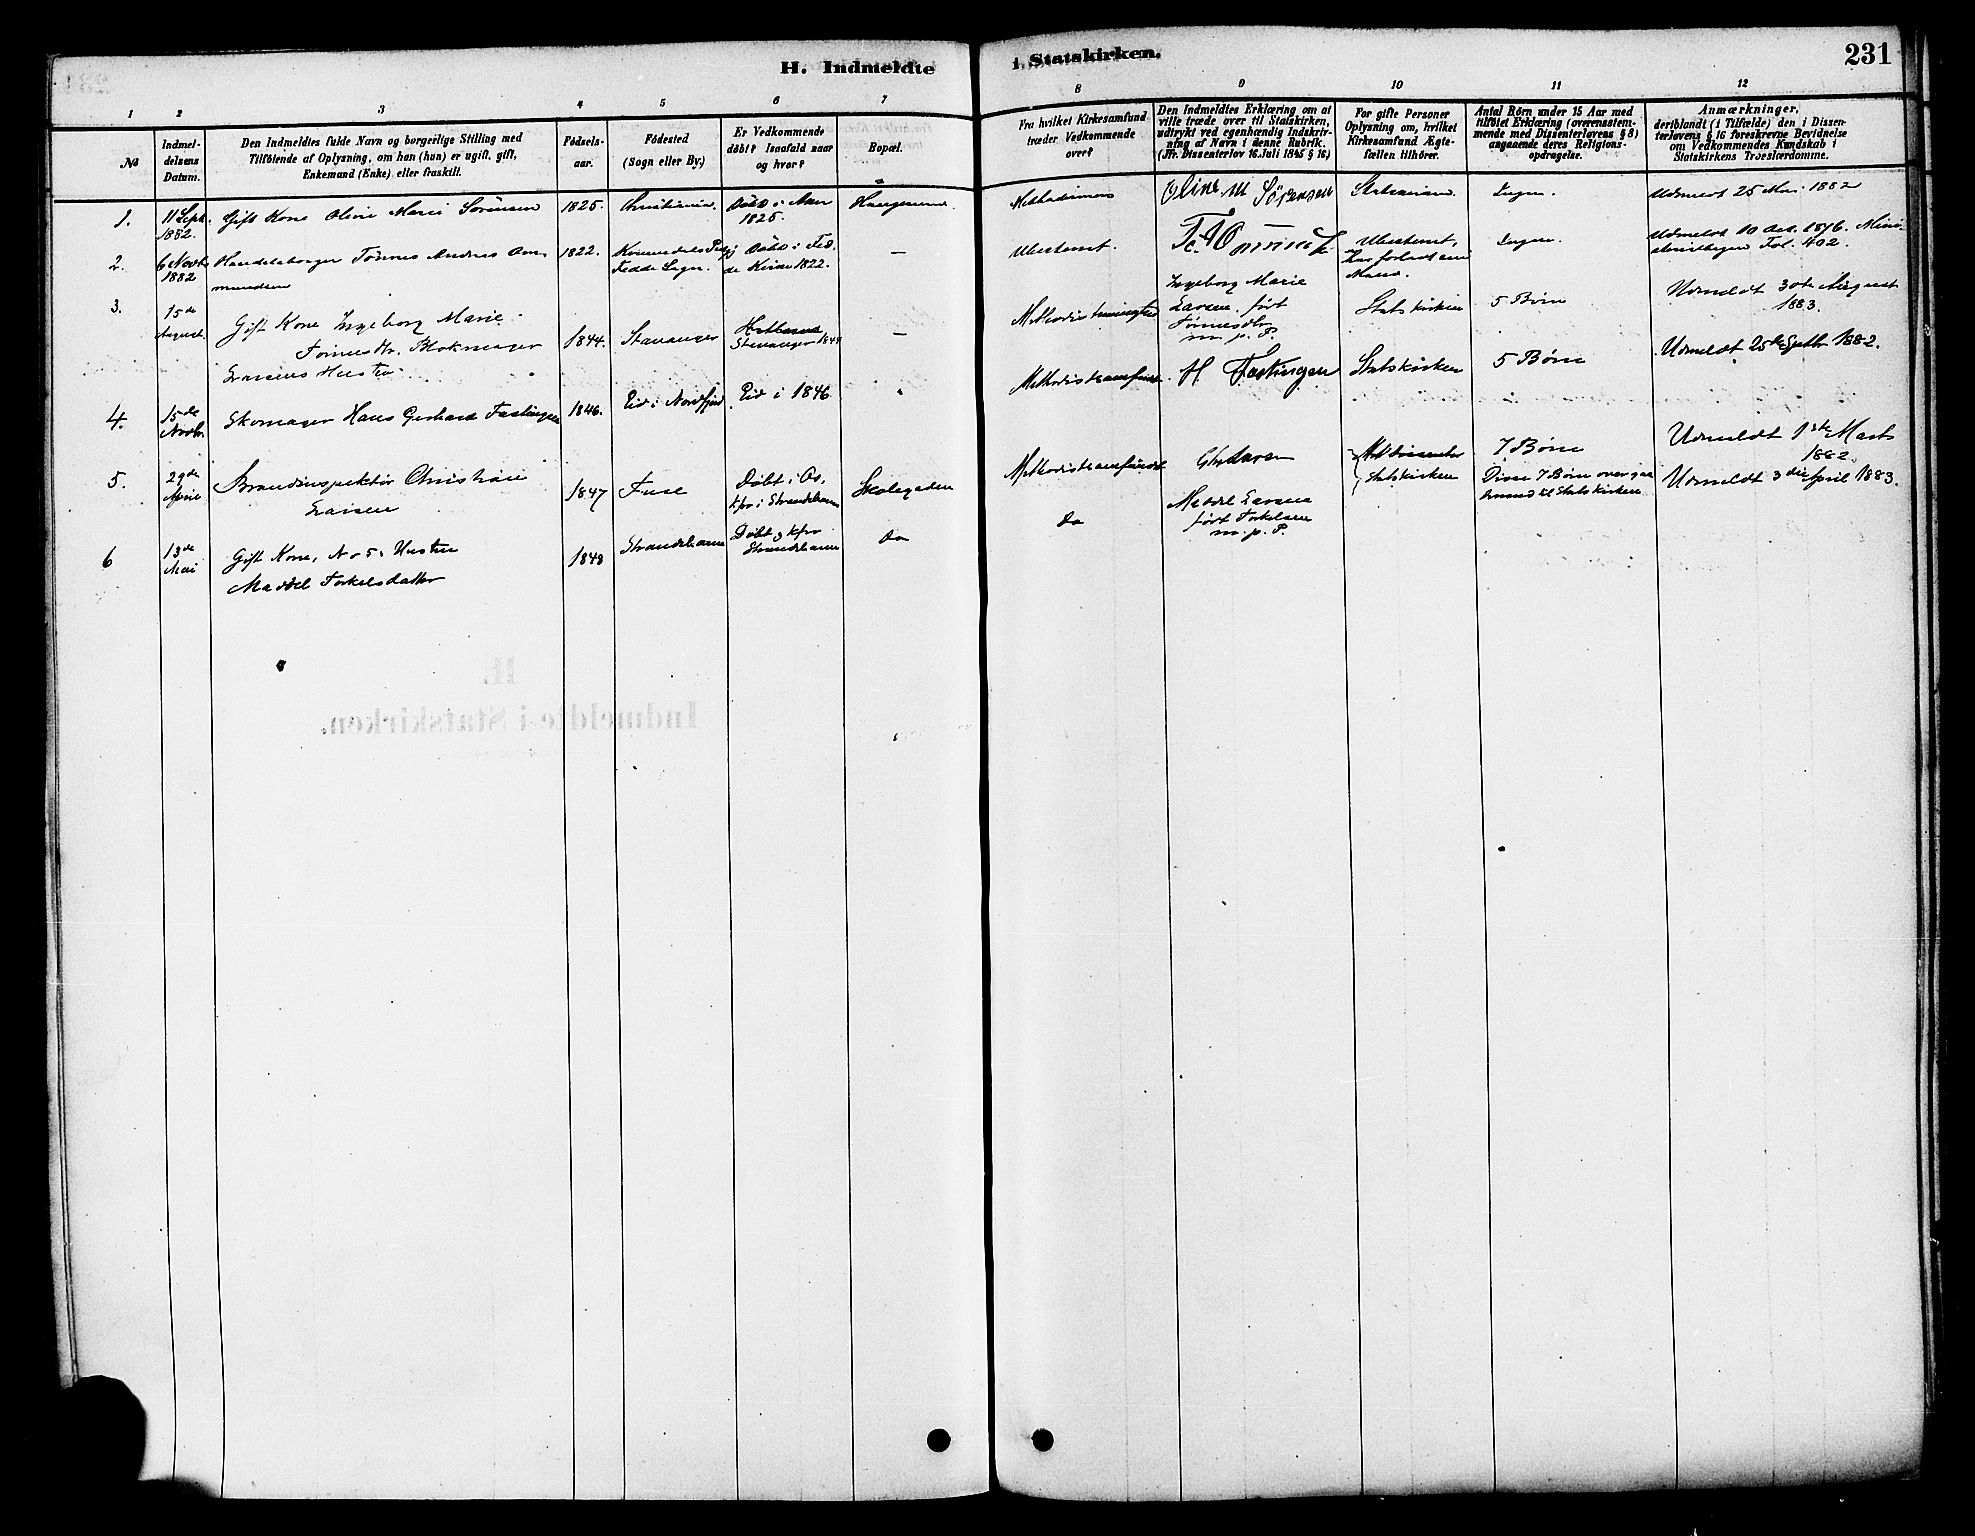 H. Indmeldte
i Statskirken.
231
1 2 3 4 5 6 7
8 9 10 11 12
No
Indmel-
delsens
Datum.
Den Indmeldtes fulde Navn og borgerlige Stilling med
Tilföiende af Oplysning, om han (hun) er ugift, gift,
Enkemand (Enke) eller fraskilt.
Födsels-
aar.
Födested
(Sogn eller By.)
Er Vedkommende
döbt? Isaafald naar
og hvor?
Bopæl.
Fra hvilket Kirkesamfund
træder Vedkommende
over?
Den Indmeldtes Erklæring om at
ville træde over til Statskirken,
udtrykt ved egenhændig Indskriv-
ning af Navn i denne Rubrik.
(Jfr. Dissenterlov 16. Juli 1845 § 16.)
For gifte Personer
Oplysning om, hvilket
Kirkesamfund Ægte-
fællen tilhörer.
Antal Börn under 15 Aar med
tilföiet Erklæring (overensstem-
mende med Dissenterlovens § 8)
angaaende deres Religions-
opdragelse.
Anmærkninger,
deriblandt (i Tilfælde) den i Dissen-
terlovens § 16 foreskrevne Bevidnelse
om Vedkommendes Kundskab i
Statskirkens Troeslærdomme.
1.
11 Sept.
1882.
Gift Kone Oline Marie Sörensen
1825.
Christiania.
Döbt i
1825.
Oline M Sörensen
Ingen.
Udmeldt 25 1882
2.
6 Novbr
1882
Handelsborger Tönnes Andreas Am-
mundsen
1822.
Fedde Sogn.
Döbt i Fed-
de Kirke 1822.
—
Ubestemt.
Ubestemt,
har forladt sin
Mand.
Ingen.
Udmeldt 10 1876. Mini-
sterialbogen Fol. 402.
3.
15de
August.
Gift Kone Ingeborg Marie
Tönnesdtr. Blokmager
Larsens Hustru.
1844.
Stavanger
Stavanger 1844
—
Ingeborg Marie
Larsen, født
Tönnesdtr.
m. p. P.
Statskirken
5 Børn
Udmeldt 30te August
1883.
4.
15de
Novbr.
Skomager Hans Gerhard Fastingen
1846.
Eid i Nordfjord
Eid i 1846.
Methodistsamfund.
H Fastingen
Statskirken
5 Børn
Udmeldt 25de Septbr. 1882.
5.
29de
April
Brandinspektör Christian
Larsen
1847
Fuse
Döbt i Os,
kfm i Strandebarm
Skolegaden
Methodistsamfundet
Larsen
Statskirken
7 Børn
Disse 7 Børn overgaa
til Statskirken
Udmeldt 1ste Marts
1882.
6
13de
Mai
Gift Kone, No 5s Hustru
Maddel Torkelsdatter
1848
Strandebarm
Döbt & kfm
Strandebarm
Do
Do
Maddel Larsen
født Torkelsen
m. p. P.
Udmeldt 3die April 1883.
H.
Indmeldte i Statskirken.